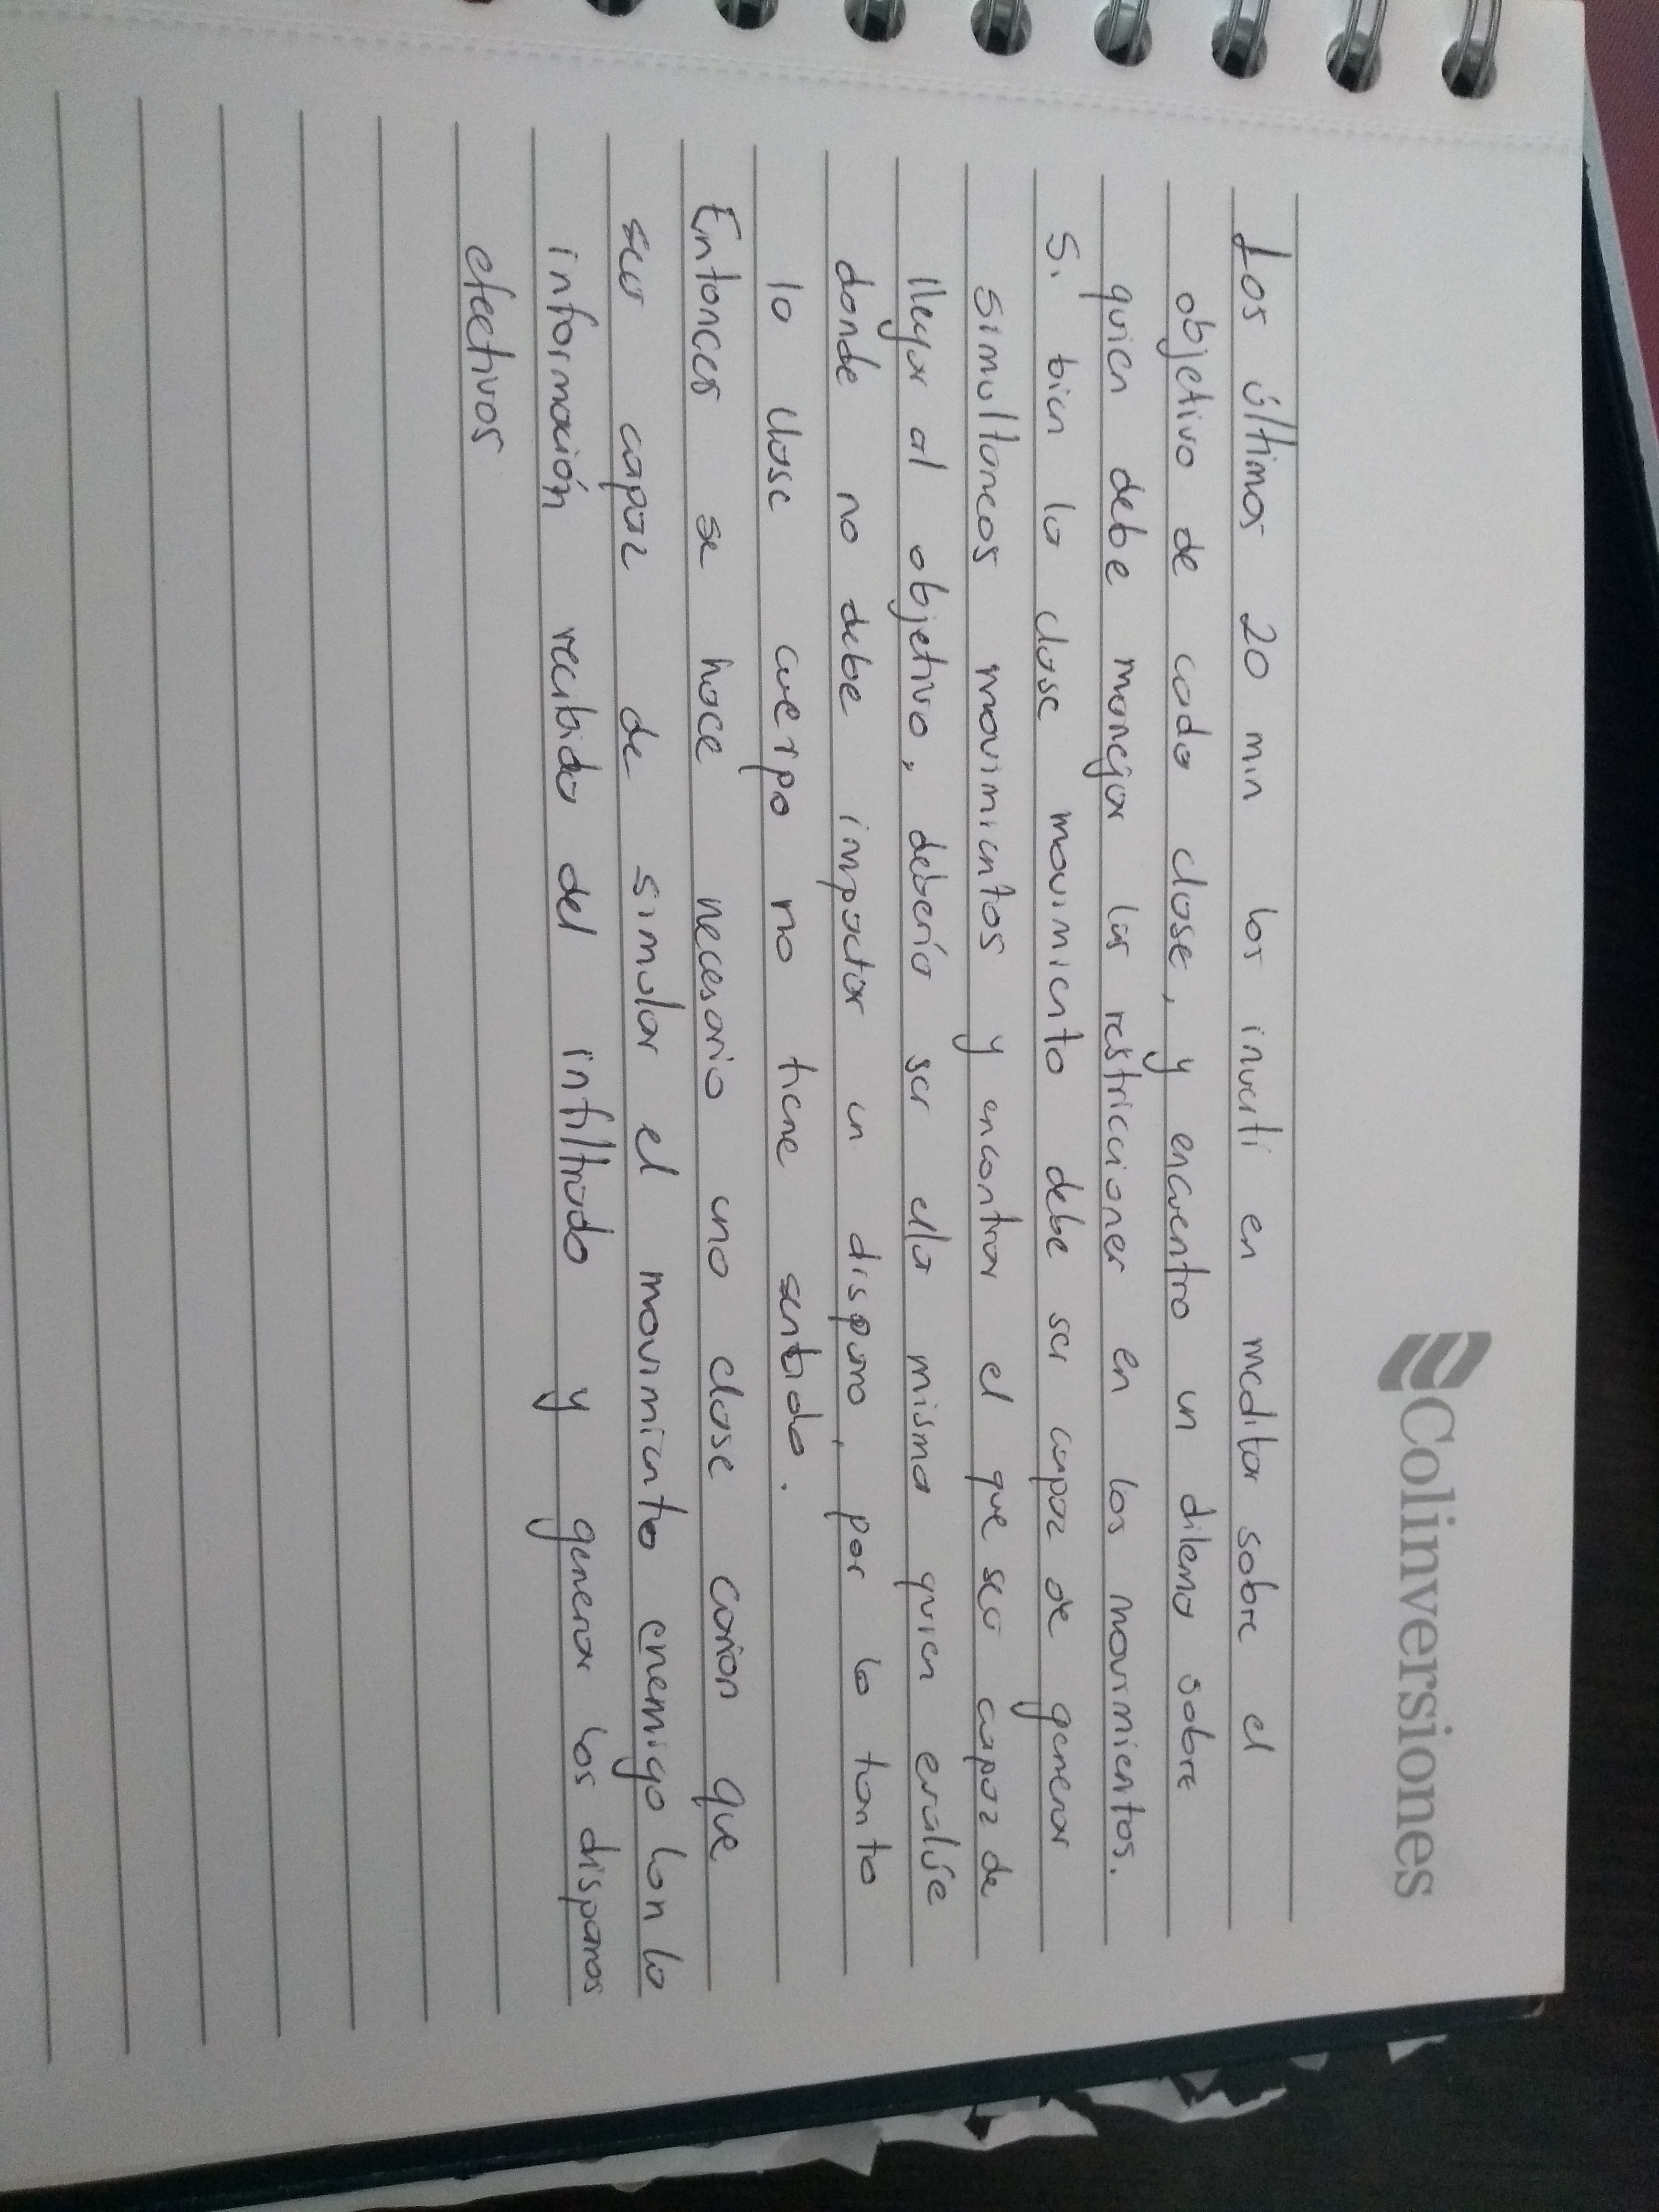 Colinversiones
Los últimos 20 min los invertí en meditar sobre el
objetivo de cada clase, y encuentro un dilema sobre
quien debe manejar las restricciones en los movimientos.
Si bien la clase movimiento debe ser capaz de generar
simultaneos movimientos y encontrar el que sea capaz de
llegar al objetivo, debería ser ella misma quien evalúe
donde no debe impactar un disparo, por lo tanto
la clase cuerpo no tiene sentido.
Entonces se hace necesario una clase cañon que
sea capaz de simular el movimiento enemigo con la
información recibida del infiltrado y generar los disparos
efectivos